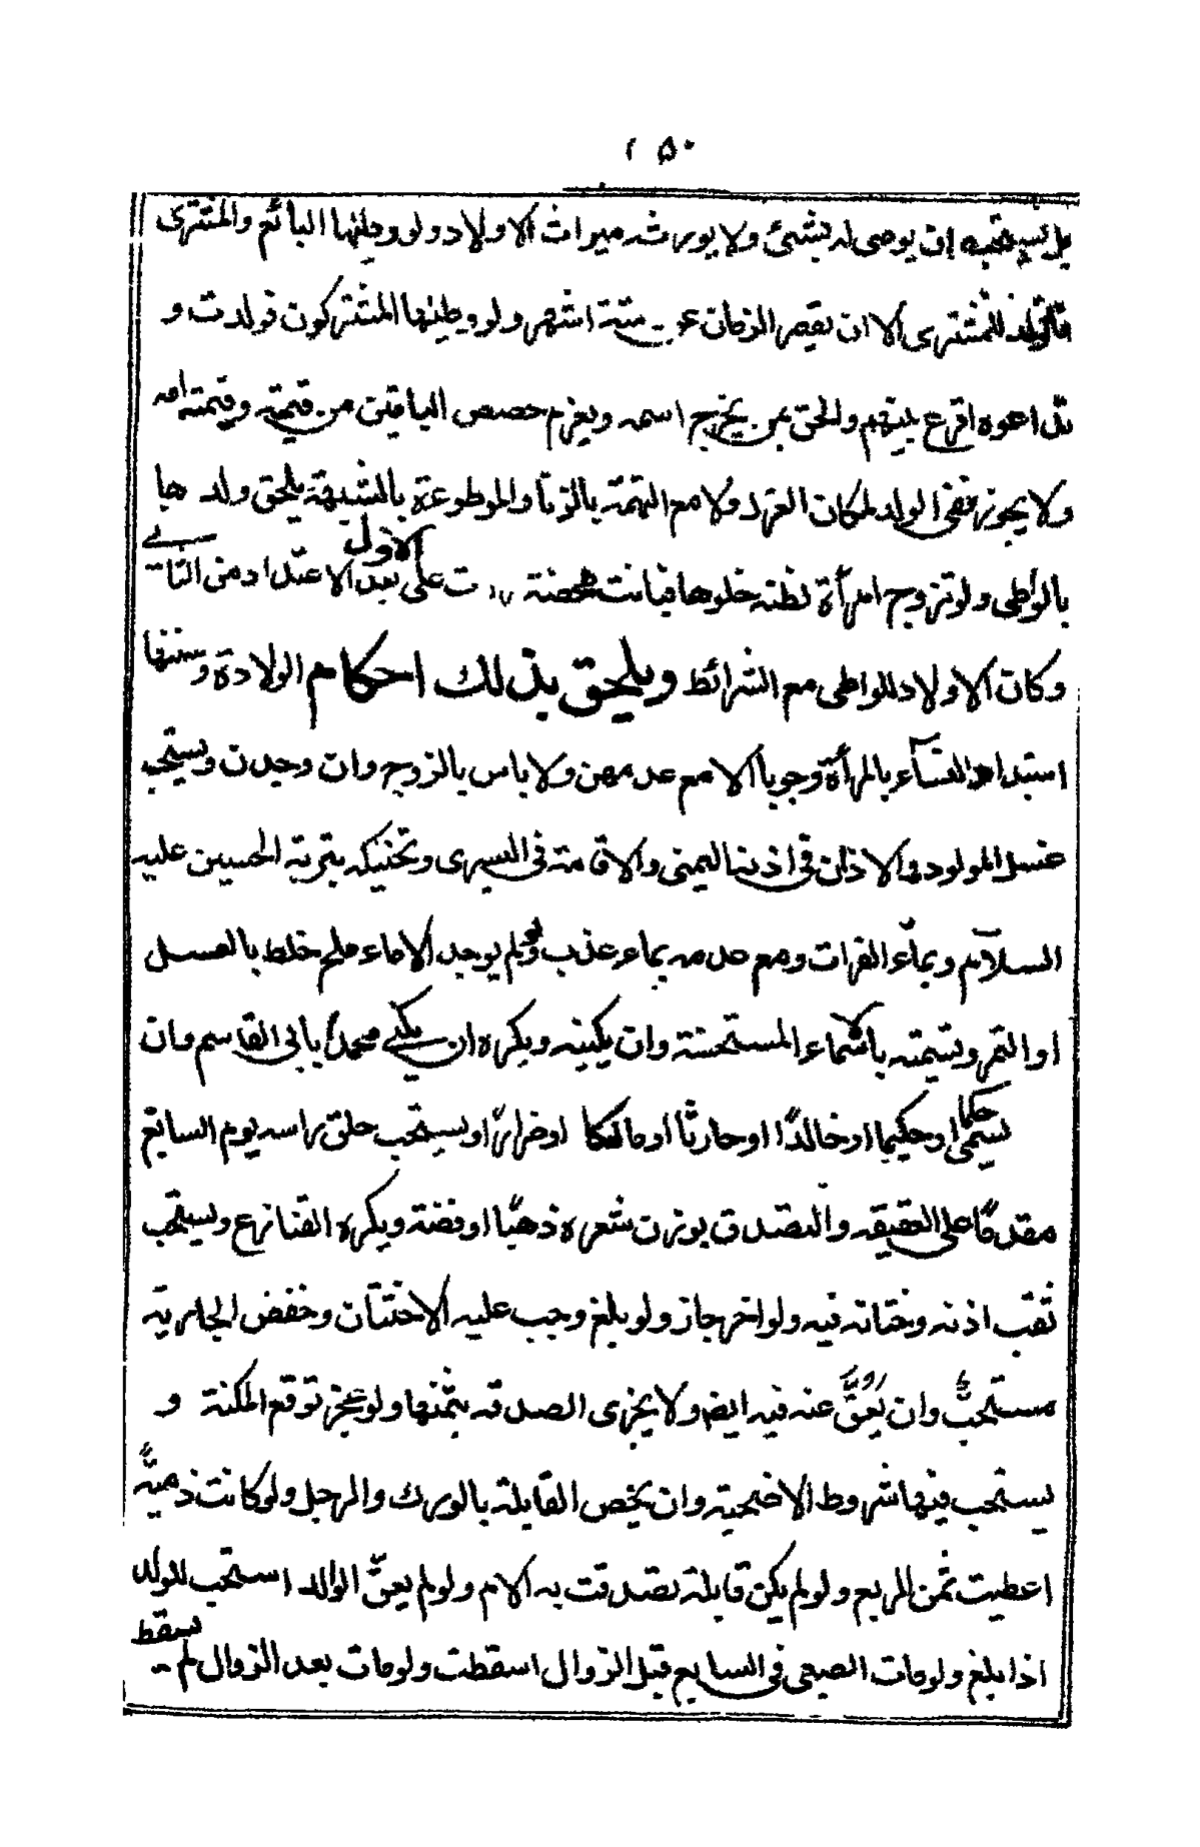 ۲۵۰
بل يستحب ان يوصى له بشئ ولا يورث ميراث الاولاد ولو وطئها البائع والمشترى
فالولد للمشترى الا ان يقصر الزمان عن ستة اشهر ولو وطئها المشتركون فولدت و
تداعوه اقرع بينهم والحق بمن يخرج اسمه ويغرم حصص الباقين من قيمته وقيمة امه
ولا يجوز نفى الولد لمكان العزل ولا مع التهمة بالزنا والموطوءة بالشبهة يلحق ولدها
بالواطى ولو تزوج امرأة لظنه خلوها فبانت محصنة ردت على بعد الاعتداد من الثانى
الاول
وكان الاولاد للواطى مع الشرائط ويلحق بذلك احكام الولادة وسننها
استبداد النساء بالمرأة وجوبا الا مع عدمهن ولا باس بالزوج وان وجدن ويستحب
غسل المولود والاذان فى اذنه اليمنى والاقامة فى اليسرى وتحنيكه بتربة الحسين عليه
السلام وبماء الفرات ومع عدمه بماء عذب ولو لم يوجد الا ماء ملح خلط بالعسل
او التمر وتسميته بالاسماء المستحسنة وان يكنيه ويكره ان يكنى محمدا بابى القاسم وان
يسمى حكما او حكيما او خالدا او حارثا او مالكا او ضرارا ويستحب حلق راسه يوم السابع
مقدما على العقيقه والتصدق بوزن شعره ذهبا او فضة ويكره القنازع ويستحب
ثقب اذنه وختانه فيه ولو اخر جاز ولو بلغ وجب عليه الاختتان وخفض الجارية
مستحب وان يعق عنه فيه ايضا ولا يجزى الصدقه بثمنها ولو عجز توقع المكنة و
يستحب فيها شروط الاضحية وان يخص القابلة بالورك والرجل ولو كانت ذمية
اعطيت ثمن الربع ولو لم يكن قابلة تصدقت به الام ولو لم يعق الوالد استحب للولد
اذا بلغ ولو مات الصبى فى السابع قبل الزوال اسقطت ولو مات بعد الزوال لم يسقط